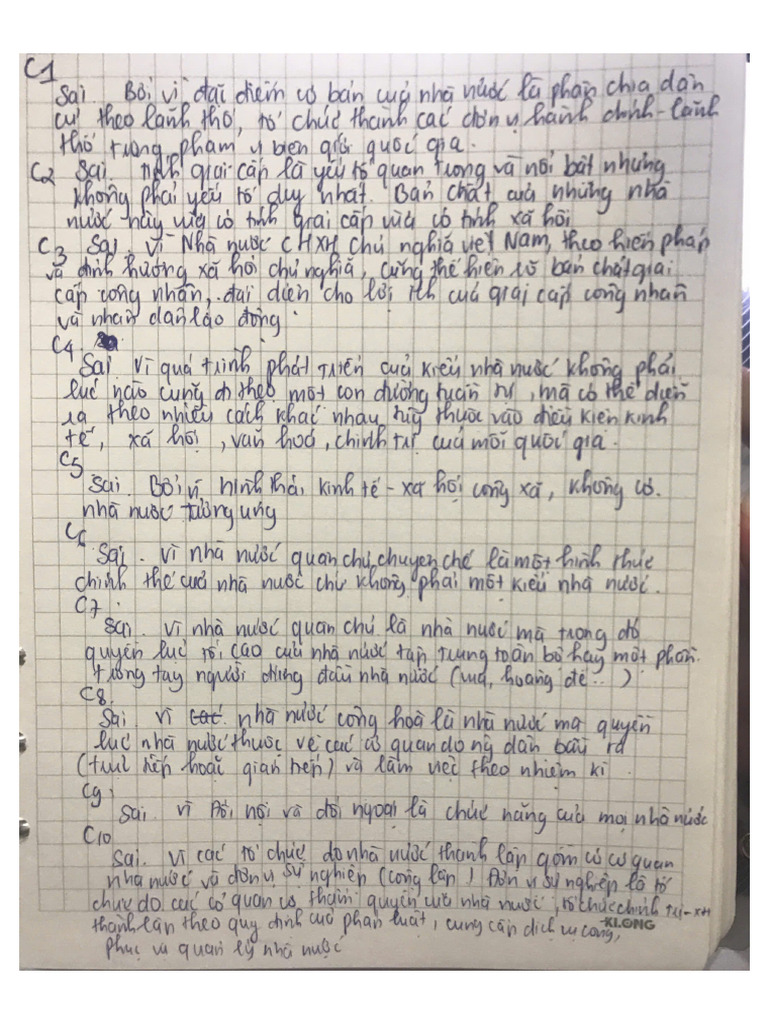 C1
Sai. Bởi vì đặc điểm cơ bản của nhà nước là phân chia dân
cư theo lãnh thổ, tổ chức thành các đơn vị hành chính - lãnh
thổ trong phạm vi biên giới quốc gia.
C2 Sai. Tính giai cấp là yếu tố quan trọng và nổi bật nhưng
không phải yếu tố duy nhất. Bản chất của những nhà
nước này vừa có tính giai cấp vừa có tính xã hội
C3 Sai. Vì Nhà nước CHXH Chủ nghĩa Việt Nam, theo hiến pháp
và định hướng xã hội chủ nghĩa, cũng thể hiện rõ bản chất giai
cấp công nhân, đại diện cho lợi ích của giai cấp công nhân
và nhân dân lao động.
C4.
Sai. Vì quá trình phát triển của kiểu nhà nước không phải
lúc nào cũng đi theo một con đường tuần tự, mà có thể diễn
ra theo nhiều cách khác nhau tùy thuộc vào điều kiện kinh
tế, xã hội, văn hoá, chính trị của mỗi quốc gia.
C5
Sai. Bởi vì hình thái kinh tế - xã hội cộng xã, không có
nhà nước tương ứng
C6
Sai. Vì nhà nước quân chủ chuyên chế là một hình thức
chính thể của nhà nước chứ không phải một kiểu nhà nước.
C7.
Sai. Vì nhà nước quân chủ là nhà nước mà trong đó
quyền lực tối cao của nhà nước tập trung toàn bộ hay một phần
trong tay người đứng đầu nhà nước (vua, hoàng đế...)
C8.
Sai. Vì nhà nước cộng hoà là nhà nước mà quyền
lực nhà nước thuộc về các cơ quan do ng dân bầu ra
(trực tiếp hoặc gián tiếp) và làm việc theo nhiệm kì.
C9.
Sai. Vì Đối nội và đối ngoại là chức năng của mọi nhà nước
C10
Sai. Vì các tổ chức do nhà nước thành lập gồm có cơ quan
nhà nước và đơn vị sự nghiệp (công lập) Đơn vị sự nghiệp là tổ
chức do các cơ quan có thẩm quyền của nhà nước, tổ chức chính trị - xH
thành lập theo quy định của pháp luật, cung cấp dịch vụ công,
phục vụ quản lý nhà nước
KLONG